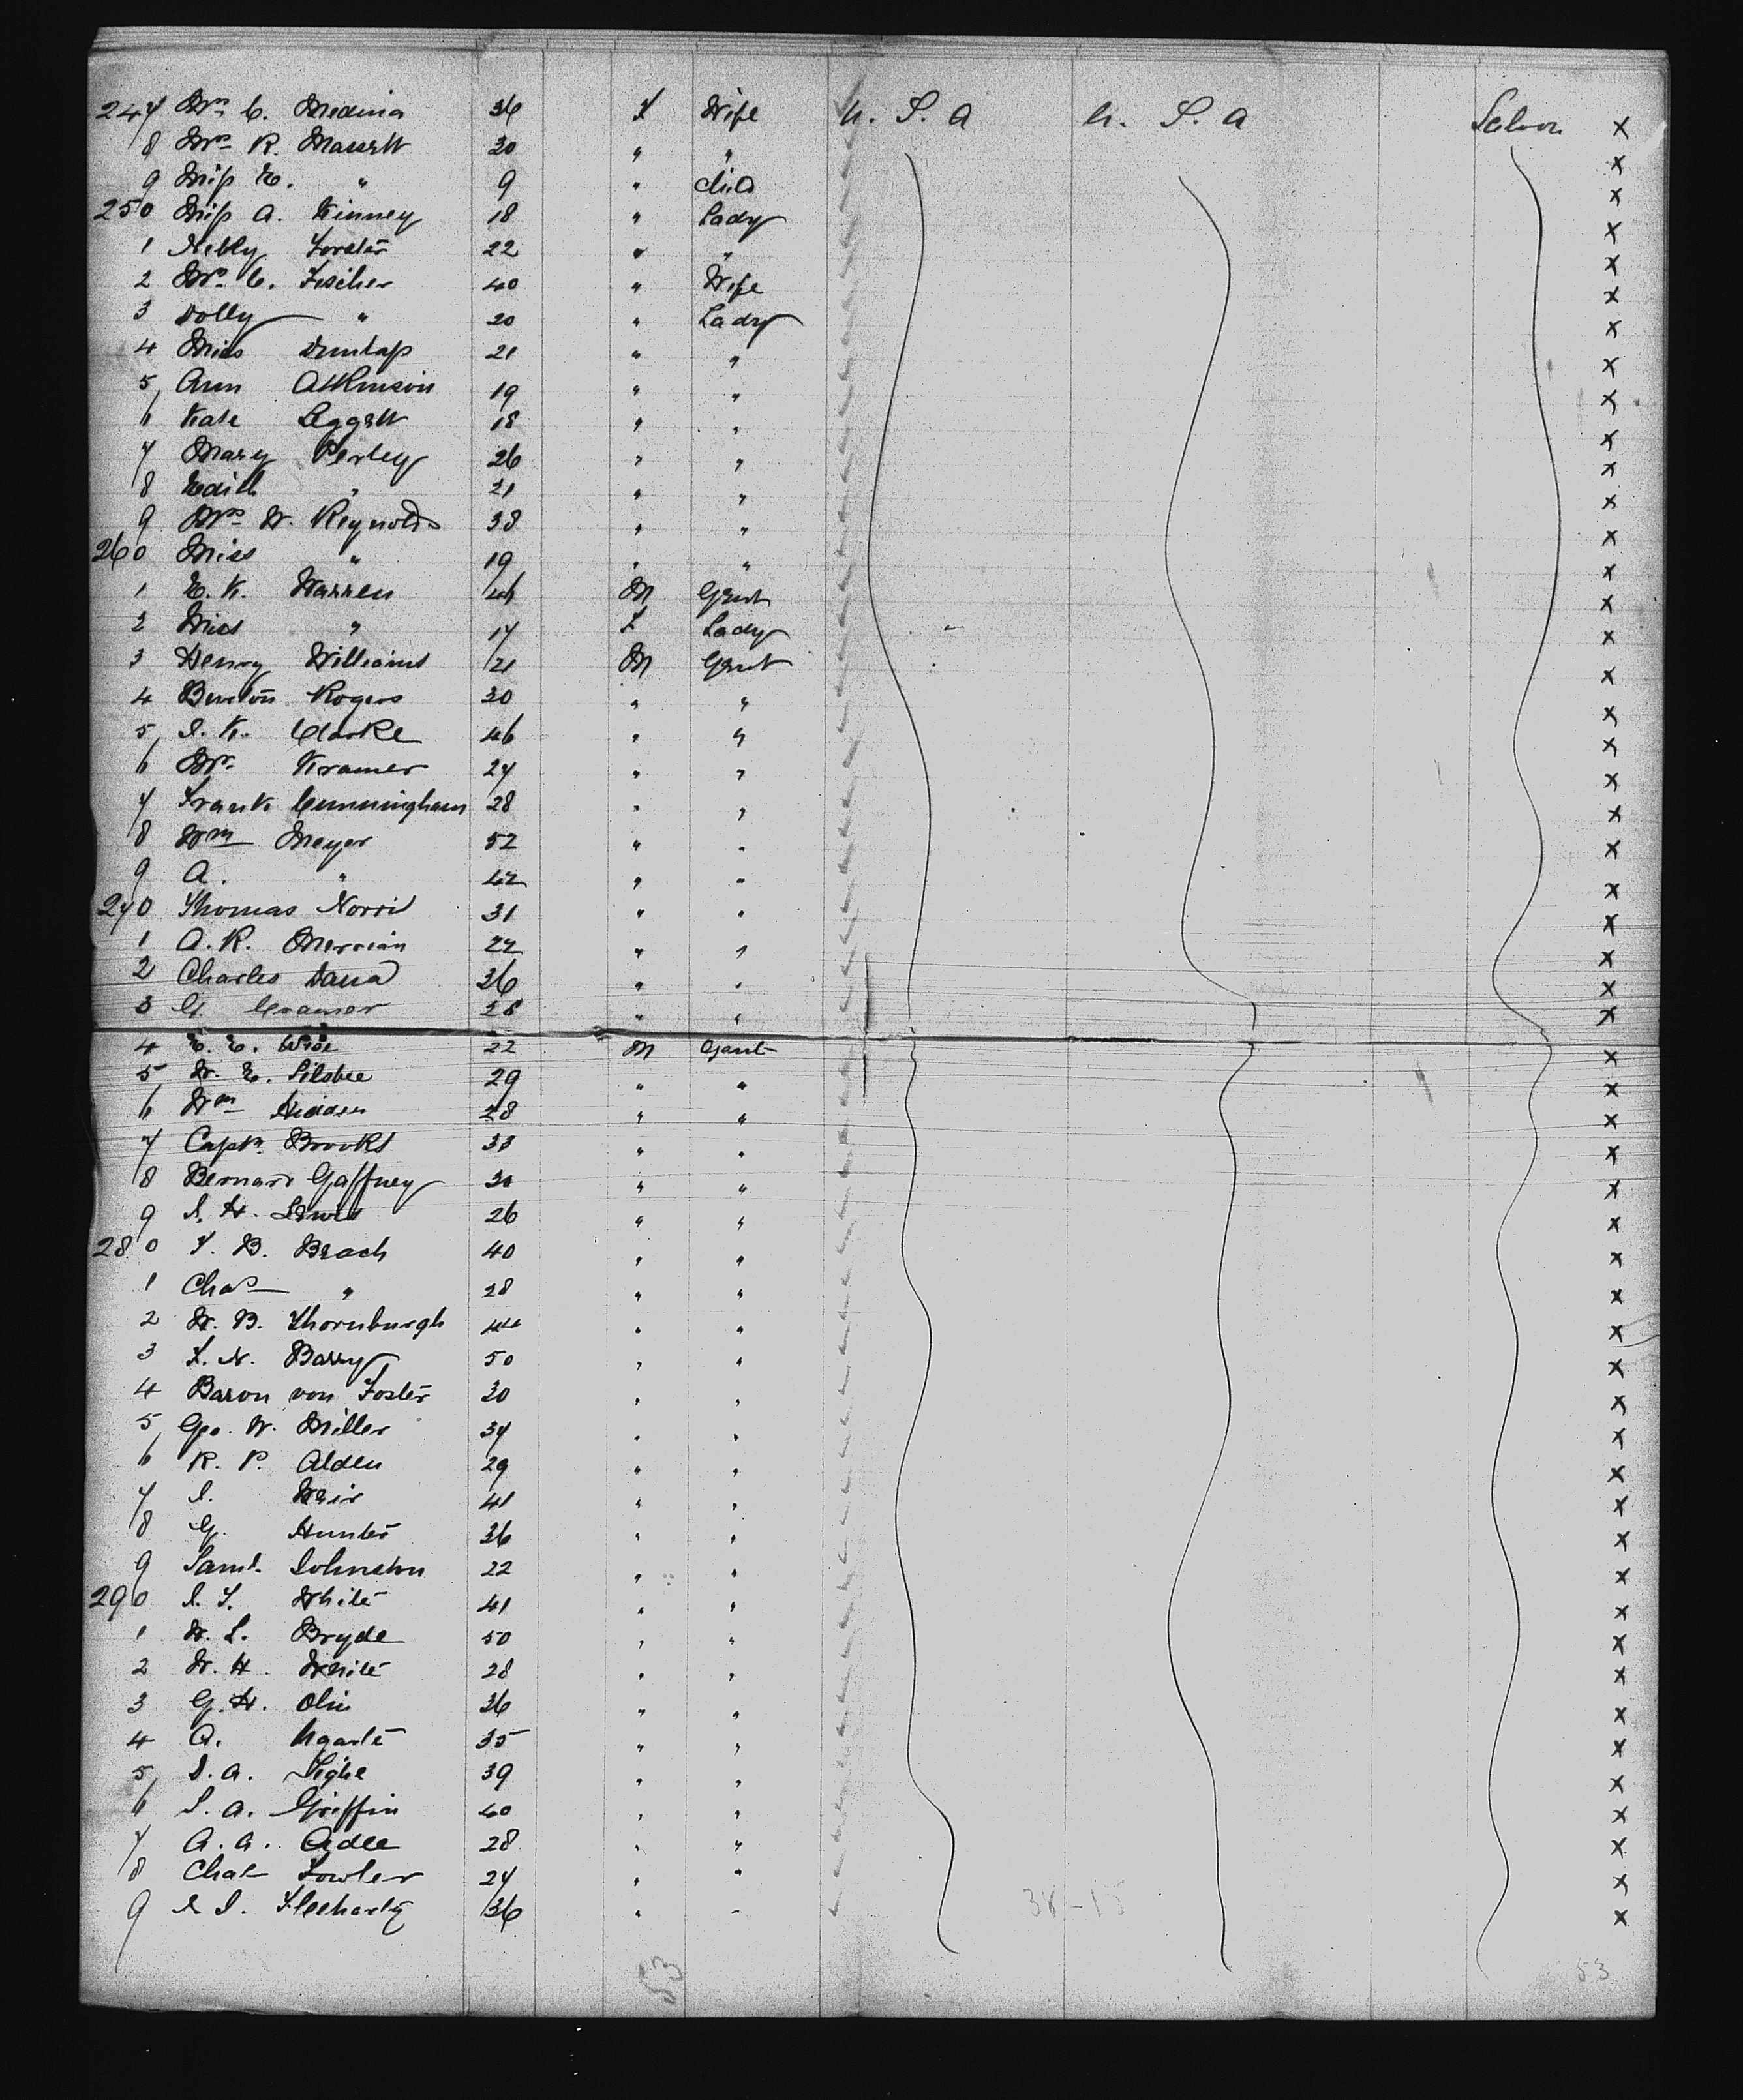 247 Mrs C. Medina 36 F Wife U. S. A U. S. A Saloon X
8 Mrs R. Massett 30 " " X
9 Miss E. " 9 " Child X
250 Miss A. Kinney 18 " Lady X
1 Nelly Forster 22 " " X
2 Mrs C. Fischer 40 " Wife X
3 Dolly " 20 " Lady X
4 Miss Dunlap 21 " " X
5 Ann Atkinson 19 " " X
6 Kate Leggett 18 " " X
7 Mary Perley 26 " " X
8 Edith " 21 " " X
9 Mrs W. Reynolds 38 " " X
260 Miss " 19 " " X
1 E. K. Warren 46 M Gent X
2 Miss " 17 F Lady X
3 Henry Williams 21 M Gent X
4 Burton Rogers 30 " " X
5 J. K. Clarke 46 " " X
6 Mr. Kramer 27 " " X
7 Frank Cunningham 28 " " X
8 Wm Meyer 52 " " X
9 A. " 42 " " X
270 Thomas Norris 31 " " X
1 A. R. Merriam 22 " " X
2 Charles Dana 36 " " X
3 G. Cramer 28 " " X
4 E. E. 22 M Gent X
5 W. E. Silsbee 29 " " X
6 Wm 28 " " X
7 Captn. Brooks 33 " " X
8 Bernard Gaffney 30 " " X
9 J. H. Lewis 26 " " X
280 F. B. Beach 40 " " X
1 Chas " 28 " " X
2 W. B. Thornburgh 44 " " X
3 L. N. Barry 50 " " X
4 Baron von Foster 30 " " X
5 Geo. W. Miller 37 " " X
6 R. P. Alden 29 " " X
7 J. Weir 41 " " X
8 G. Hunter 36 " " X
9 Saml. Johnston 22 " " X
290 J. T. White 41 " " X
1 W. L. Bryde 50 " " X
2 W. H. White 28 " " X
3 G. H. Olin 36 " " X
4 A. Ugarte 35 " " X
5 J. A. Tighe 39 " " X
6 S. A. Griffin 40 " " X
7 A. A. Adee 28 " " X
8 Chas Fowler 27 " " X
9 J. Fleeharty 36 " " X
53
53